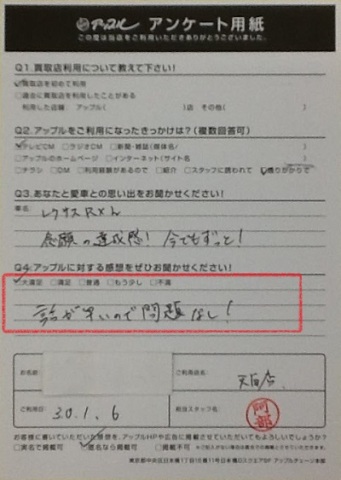 アップル アンケート用紙
この度は当店をご利用いただきありがとうございました。
Q1.買取店利用について教えて下さい!
☑買取店を初めて利用
□過去に買取店を利用したことがある
利用した店舗 アップル( )店 その他( )
Q2.アップルをご利用になったきっかけは?(複数回答可)
☑テレビCM □ラジオCM □新聞・雑誌(媒体名/ )
□アップルのホームページ □インターネット(サイト名 )
□チラシ □DM □利用経験があるので □紹介 □スタッフに誘われて □通りがかりで
Q3.あなたと愛車との思い出をお聞かせください!
車名
レクサスRXh
念願の達成感!今でもずっと!
Q4.アップルに対する感想をぜひお聞かせください!
☑大満足 □満足 □普通 □もう少し □不満
話が早いので問題なし!
お名前
ご利用店名
天白店
ご利用日
30.1.6
担当スタッフ名
阿部
お客様に書いていただいた感想を、アップルHPや広告に掲載させていただいてもよろしいでしょうか?
□実名で掲載可 ☑匿名なら掲載可 □掲載不可